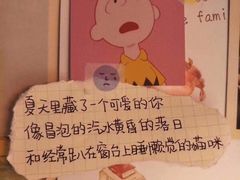 e fami
夏天里藏了一个可爱的你
像冒泡的汽水黄昏的落日
和经常趴在窗台上睡懒觉的猫咪